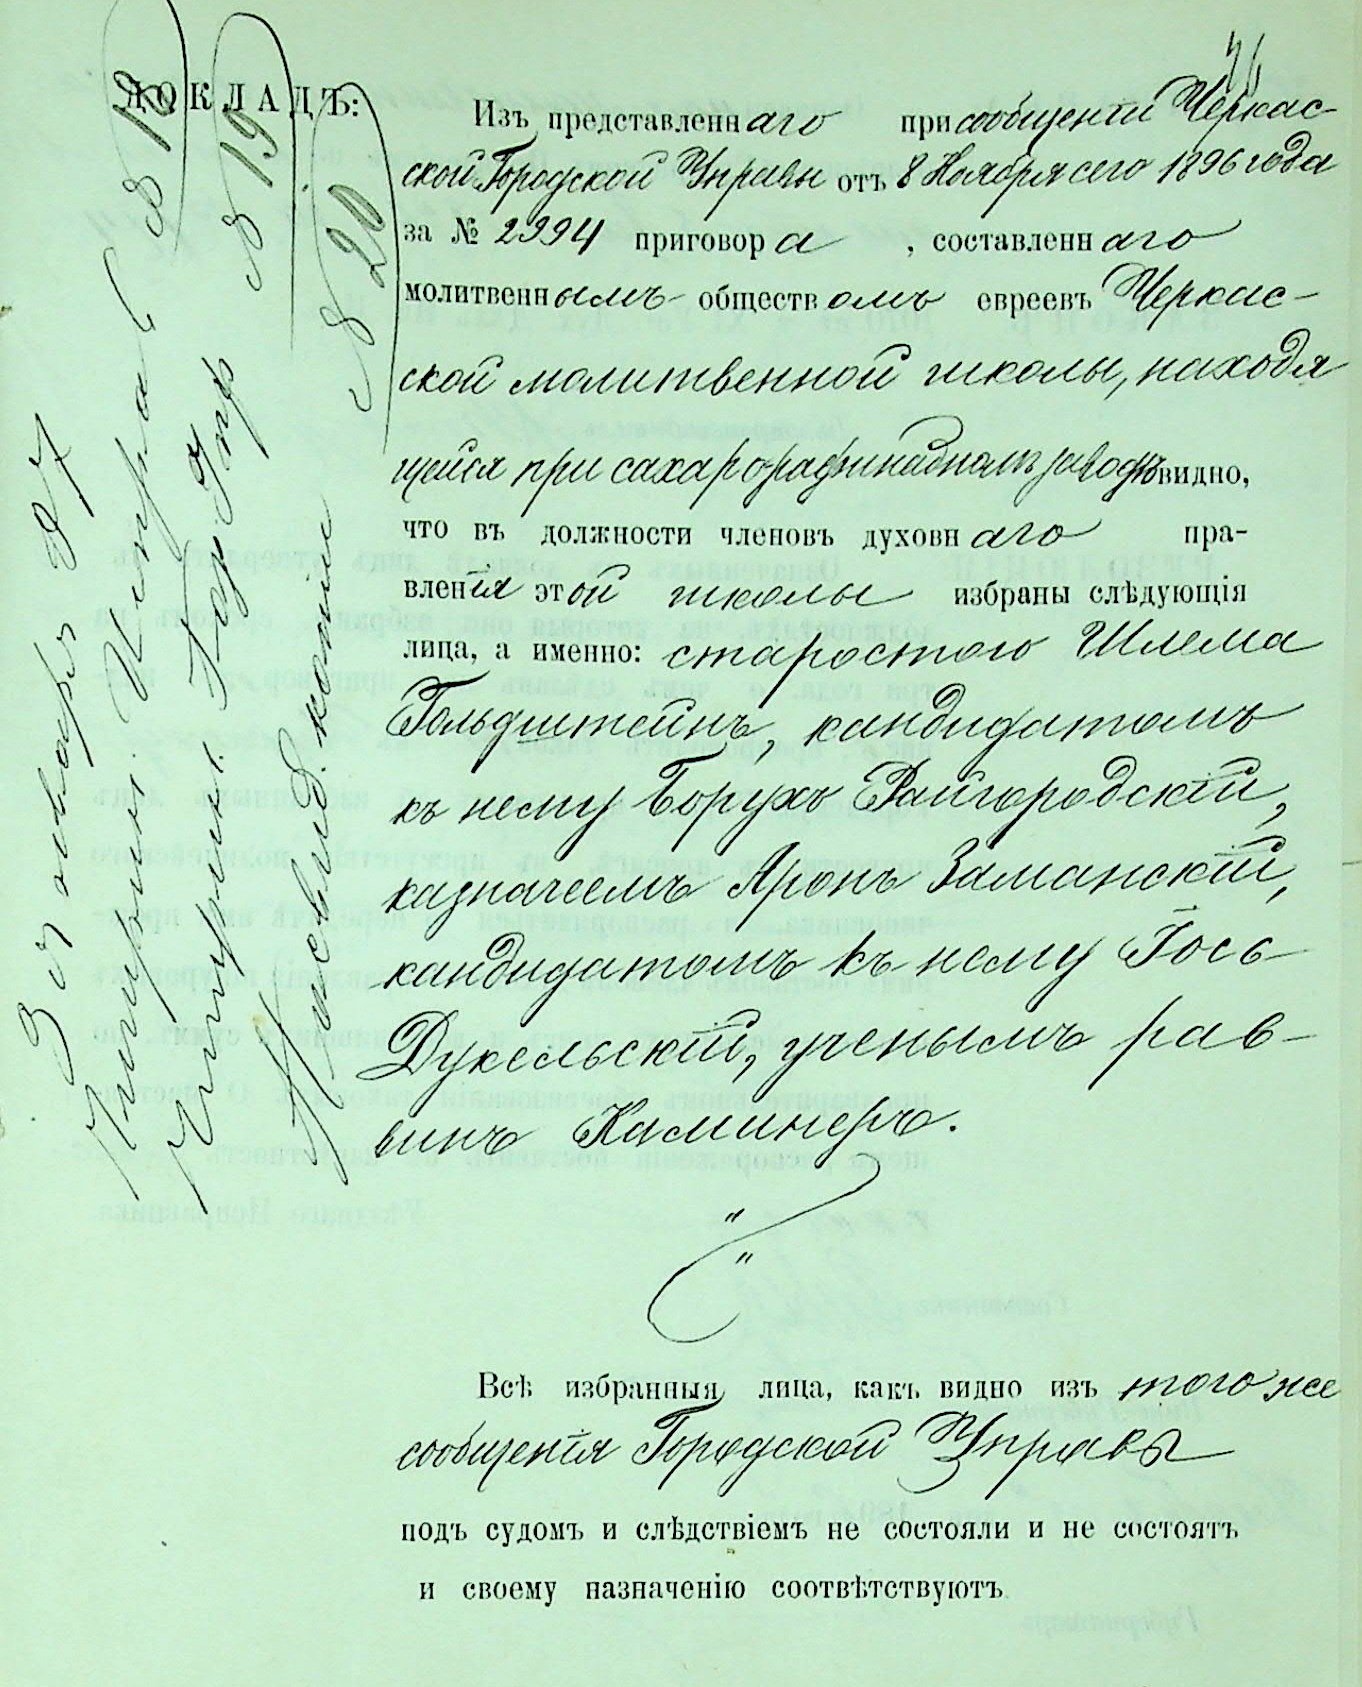 ДОКЛАДЪ:
Изъ представленнаго при сообщеніи Черкас-
ской Городской Управы отъ 8 Ноября сего 1896 года
за № 2994 приговора, составленнаго
молитвеннымъ обществомъ евреевъ Черкас-
ской молитвенной школы, находя
щейся при сахарорафинадномъ заводѣ видно,
что въ должности членовъ духовнаго пра-
вленія этой школы избраны слѣдующія
лица, а именно: старостою Шлема
Гольдштейнъ, кандидатомъ
къ нему Борухъ Райгородскій,
казначеемъ Аронъ Заманскій,
кандидатомъ къ нему Іось
Дукельскій, ученымъ рав-
винъ Каминеръ.
Всѣ избранныя лица, какъ видно изъ того же
сообщенія Городской Управы
подъ судомъ и слѣдствіемъ не состояли и не состоятъ
и своему назначенію соотвѣтствуютъ.
3 января 97
№ 18
№ 19
№ 20